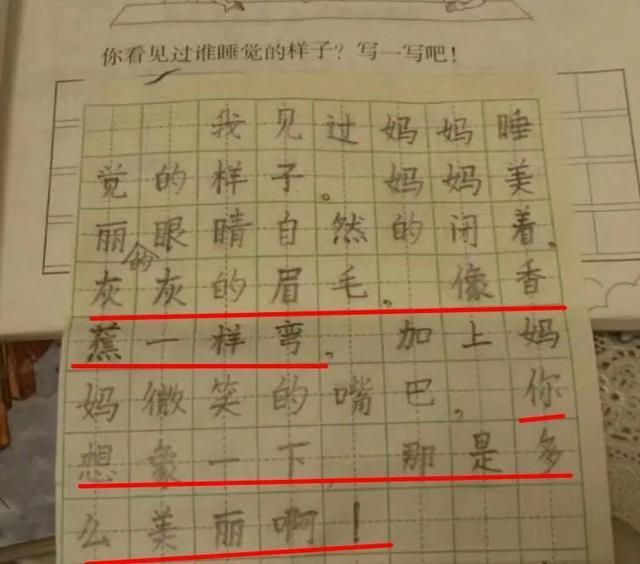 你看见过谁睡觉的样子？写一写吧！
我见过妈妈睡
觉的样子。妈妈美
丽的眼睛自然的闭着，
灰灰的眉毛，像香
蕉一样弯，加上妈
妈微笑的嘴巴，你
想象一下，那是多
么美丽啊！